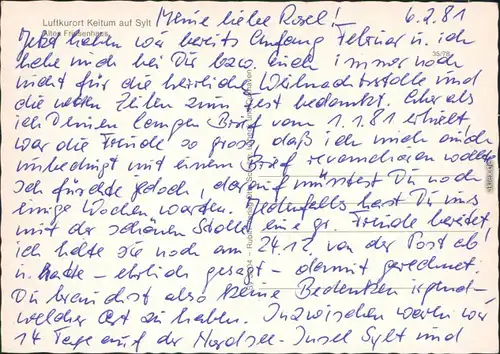 Luftkurort Keitum auf Sylt
Altes Friesenhaus
35/78
Meine liebe Rosel! 6.2.81
Jetzt haben wir bereits Anfang Februar u. ich
habe mich bei Dir bzw. Euch immer noch
nicht für die herrliche Weihnachtsstolle und
die netten Zeilen zum Fest bedankt. Eher als
ich Deinen langen Brief vom 1.1.81 erhielt,
war die Freude so gross, daß ich mich auch
unbedingt mit einem Brief revanchieren wollte.
Ich fürchte jedoch, darauf müsstest Du noch
einige Wochen warten. Jedenfalls hast Du uns
mit der schönen Stolle eine gr. Freude bereitet,
ich holte sie noch am 24.12. von der Post ab
u. hatte - ehrlich gesagt - damit gerechnet.
Du brauchst also keine Bedenken irgend-
welcher Art zu haben. Inzwischen waren wir
14 Tage auf der Nordsee-Insel Sylt und